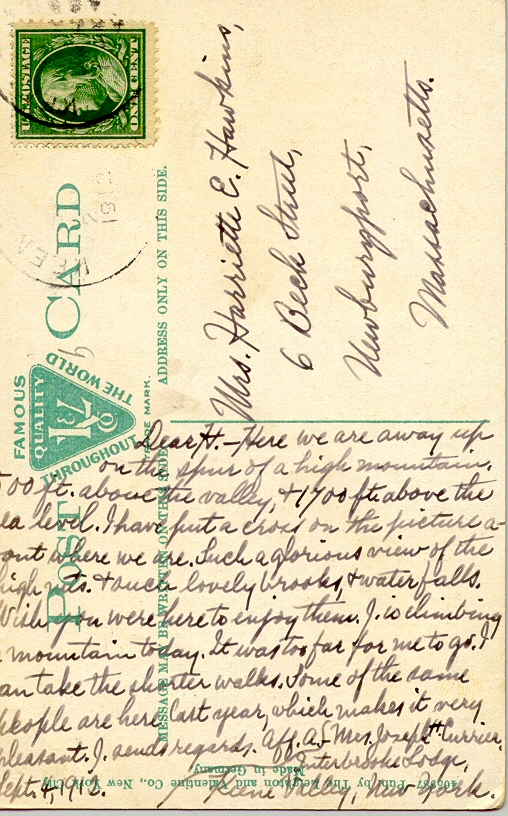 U.S. POSTAGE
ONE CENT
1912
POST CARD
FAMOUS
QUALITY
THROUGHOUT
THE WORLD
TRADE MARK.
ADDRESS ONLY ON THIS SIDE.
MESSAGE MAY BE WRITTEN ON THIS SIDE
Mrs. Harriette E. Hawkins,
6 Beck Street,
Newburyport,
Massachusetts.
Dear H. - Here we are away up
on the spur of a high mountain,
500 ft. above the valley, & 1700 ft. above the
sea level. I have put a cross on the picture a-
bout where we are. Such a glorious view of the
high mts. & such lovely brooks, & waterfalls.
Wish you were here to enjoy them. J. is climbing
a mountain today. It was too far for me to go. I
can take the shorter walks. Some of the same
people are here last year, which makes it very
pleasant. J. sends regards. Aff. A. - Mrs. Joseph H. Currier,
Interbrooke Lodge,
Sept. 4, 1912. Keene Valley, New York.
Pub. by The Leighton and Valentine Co., New York City.
Made in Germany